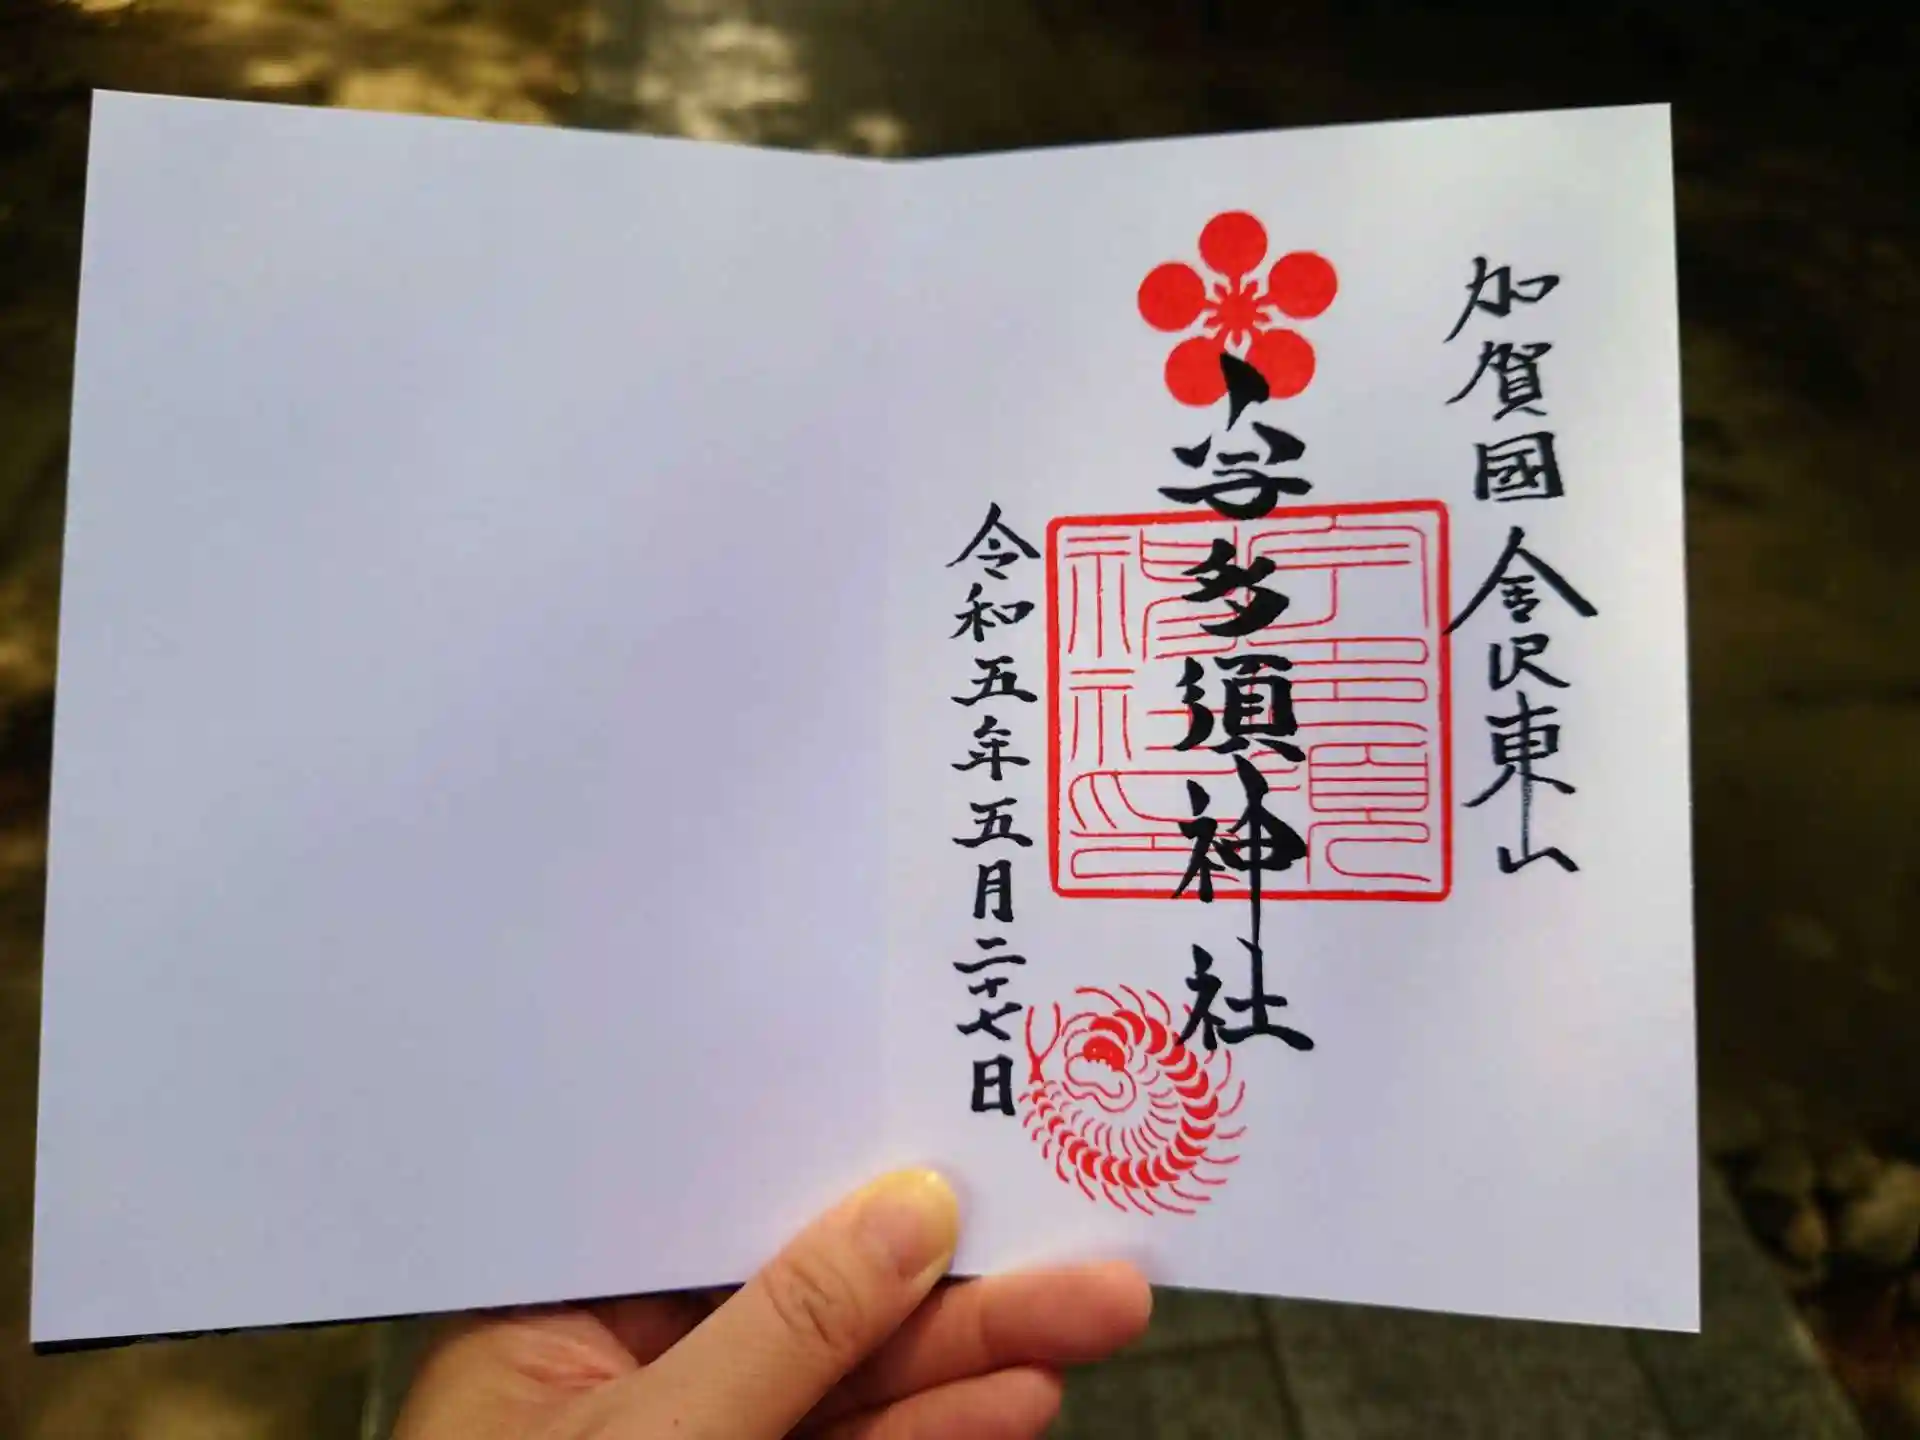 加賀國金沢東山
宇多須神社
宇多須神社印
令和五年五月二十七日